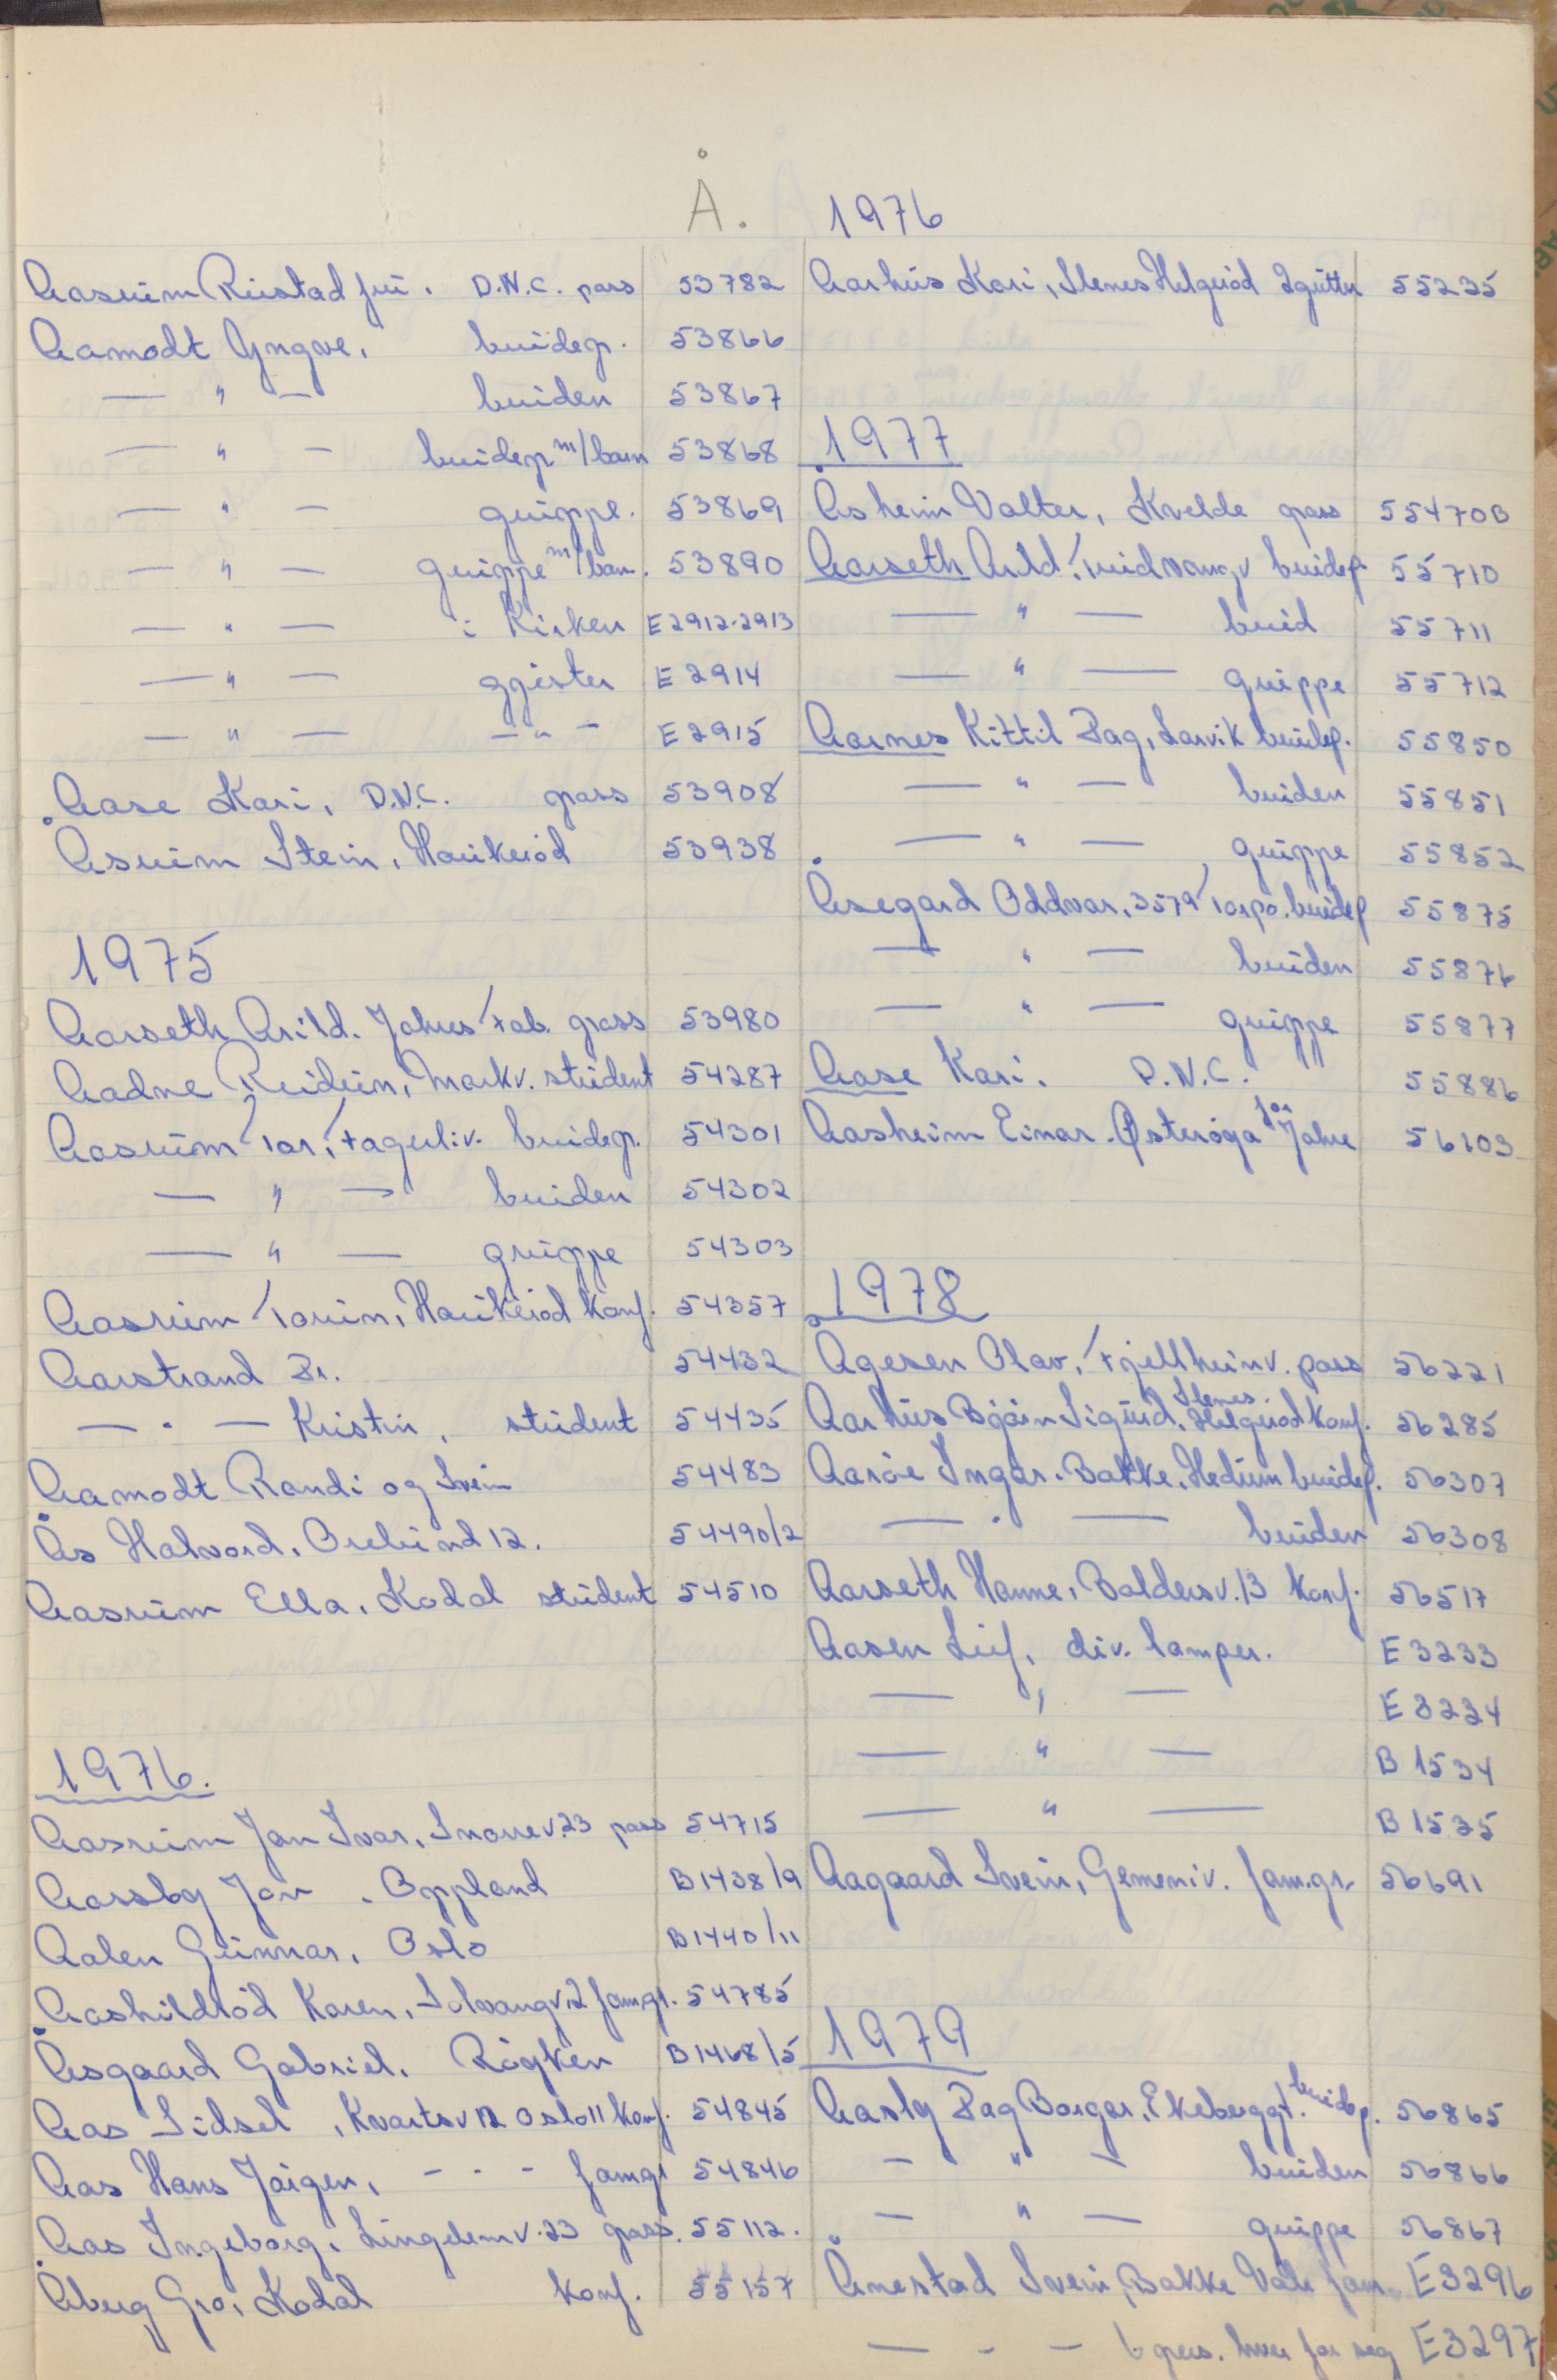 Å.
Aasrum Rustad fru. D.N.C. pass 53782
Aamodt Yngve, brudepr. 53866
— " — bruden 53867
— " — brudepr m/barn 53868
— " — gruppe. 53869
— " — gruppe m/barn. 53890
— " — i Kirken E2912-2913
— " — gjester E2914
— " — — " — E2915
Aase Kari, D.N.C. pass 53908
Åsrum Stein, Haukerød 53938
1975
Aarseth Arild. Jahres Fab. pass 53980
Aadne Reidun, Markv. student 54287
Aasrum Tor, Fagerliv. brudepr. 54301
— " — bruden 54302
— " — gruppe 54303
Aasrum Torunn, Haukerød konf. 54357
Aarstrand Br. 54432
— " — Kristin, student 54435
Aamodt Randi og Svein 54483
Ås Halvard, Orelund 12. 54490/2
Aasrum Ella, Kodal student 54510
1976.
Aasrum Jan Ivar, Snorrev.23 pass 54715
Aassby Jan, Oppland B1438/9
Aalen Gunnar, Oslo B1440/11
Aashildrød Karen, Solvangv.2 famgr. 54785
Åsgaard Gabriel, Røyken B1468/5
Aas Sidsel, Kvartsv 12 Oslo 11 konf. 54845
Aas Hans Jørgen, - " - famgr 54846
Aas Ingeborg, Lingelemv.23 pass. 55112.
Åberg Gro, Kodal konf. 55157
1976
Aarhus Kari, Stenes Helgerød 2 gutter 55235
1977
Åsheim Valter, Kvelde pass 55470B
Aarseth Arild, Tuidvangv brudep. 55710
— " — brud 55711
— " — gruppe 55712
Aarnes Kittil Dag, Larvik brudep. 55850
— " — bruden 55851
— " — gruppe 55852
Åsegard Oddvar, 3579 Torpo. brudep 55875
— " — bruden 55876
— " — gruppe 55877
Aase Kari. D.N.C. 55886
Aasheim Einar. Østerøya for Jahre 56103
1978
Ågesen Olav, Fjellheimv. pass 56221
Aarhus Bjørn Sigurd, Stenes Helgerød konf. 56285
Aarøe Ingar. Bakke, Hedrum brudep. 56307
— " — bruden 56308
Aarseth Hanne, Baldersv.13 konf. 56517
Aasen Leif, div. lamper. E3233
— " — E3234
— " — B1534
— " — B1535
Aagaard Svein, Gemeniv. fam.gr. 56691
1979
Aasly Dag Borgar, Ekeberggt. brudep. 56865
— " — bruden 56866
— " — gruppe 56867
Åmestad Svein, Bakke Våle fam E3296
— " — 6 pers. hver for seg E3297